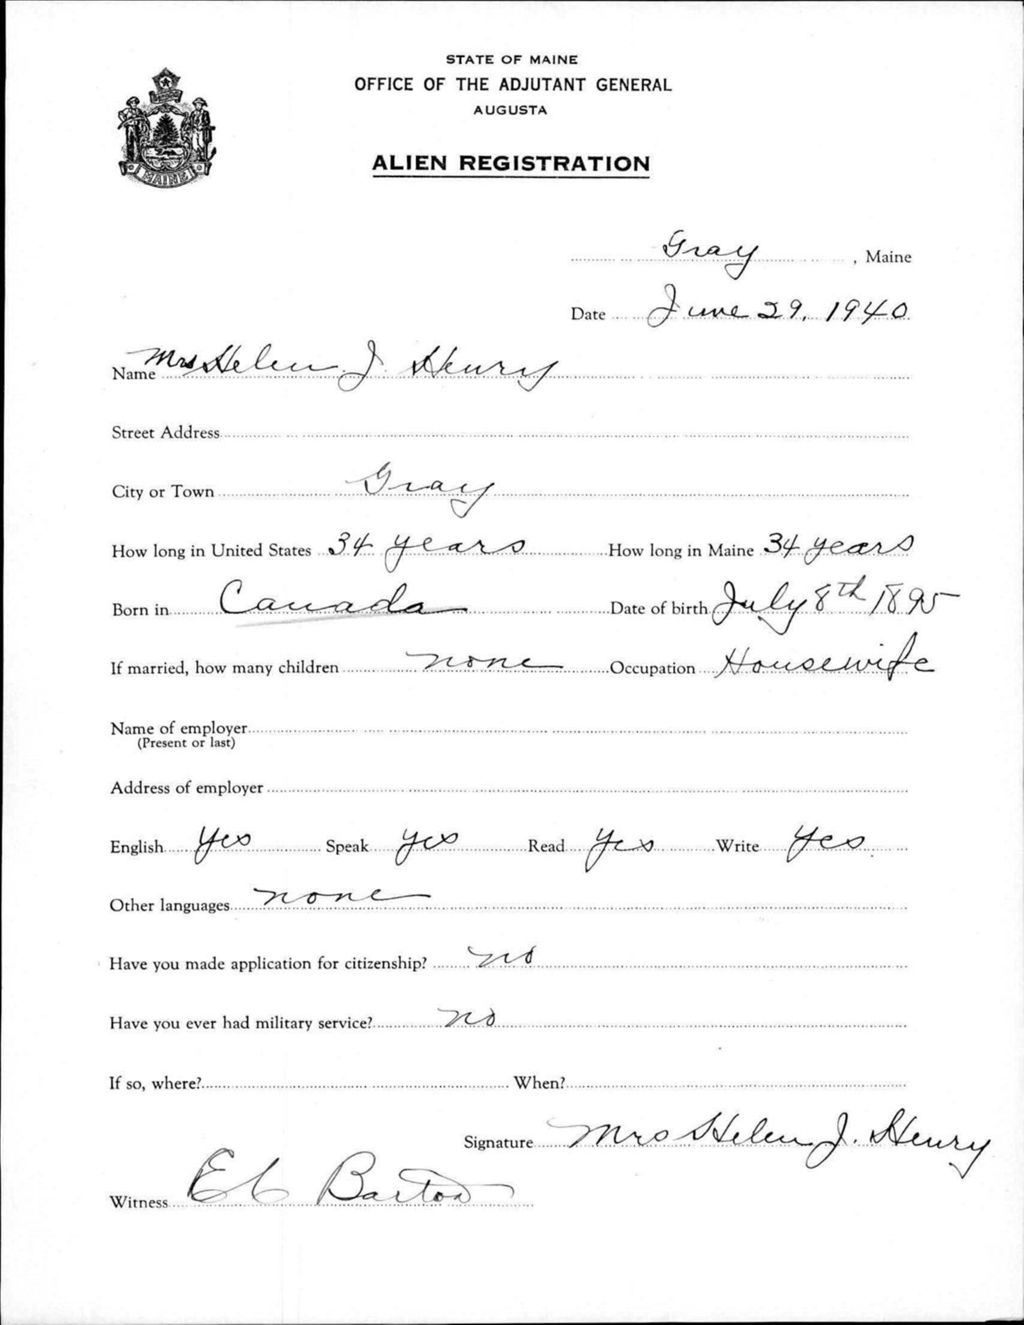 STATE OF MAINE
OFFICE OF THE ADJUTANT GENERAL
AUGUSTA
ALIEN REGISTRATION
MAINE
Gray, Maine
Date June 29, 1940
Name Mrs Helen J Henry
Street Address
City or Town Gray
How long in United States 34 years How long in Maine 34 years
Born in Canada Date of birth July 8th 1895
If married, how many children none Occupation Housewife
Name of employer
(Present or last)
Address of employer
English yes Speak yes Read yes Write yes
Other languages none
Have you made application for citizenship? no
Have you ever had military service? no
If so, where? When?
Signature Mrs Helen J. Henry
Witness E C Barton